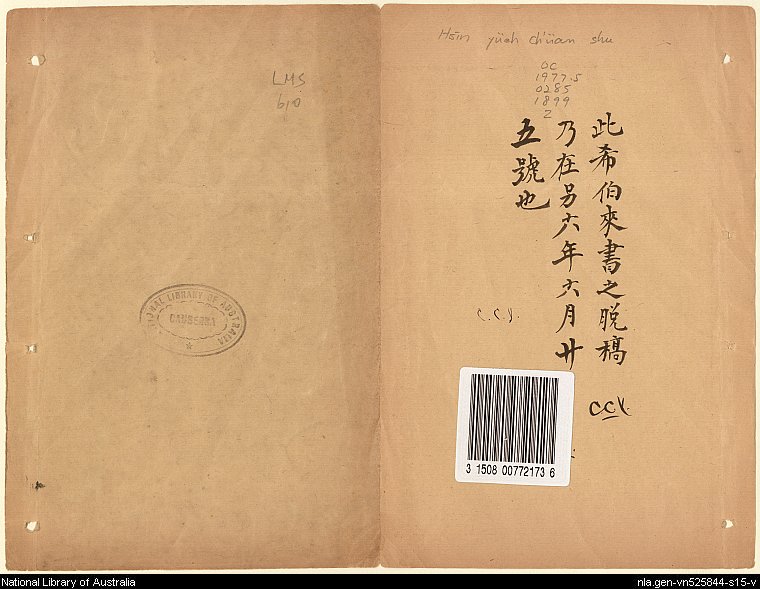 LMS
610
NATIONAL LIBRARY OF AUSTRALIA
CANBERRA
Hsin yüeh ch'üan shu
OC
1977.5
0285
1899
2
此希伯來書之脱稿
乃在另六年六月廿
五號也
c.c.y.
CCY.
3 1508 00772173 6
National Library of Australia
nla.gen-vn525844-s15-v